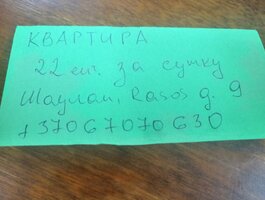 КВАРТИРА.
22 еит. за сутку
Шаулаи, Rasos g. 9
+37067070630